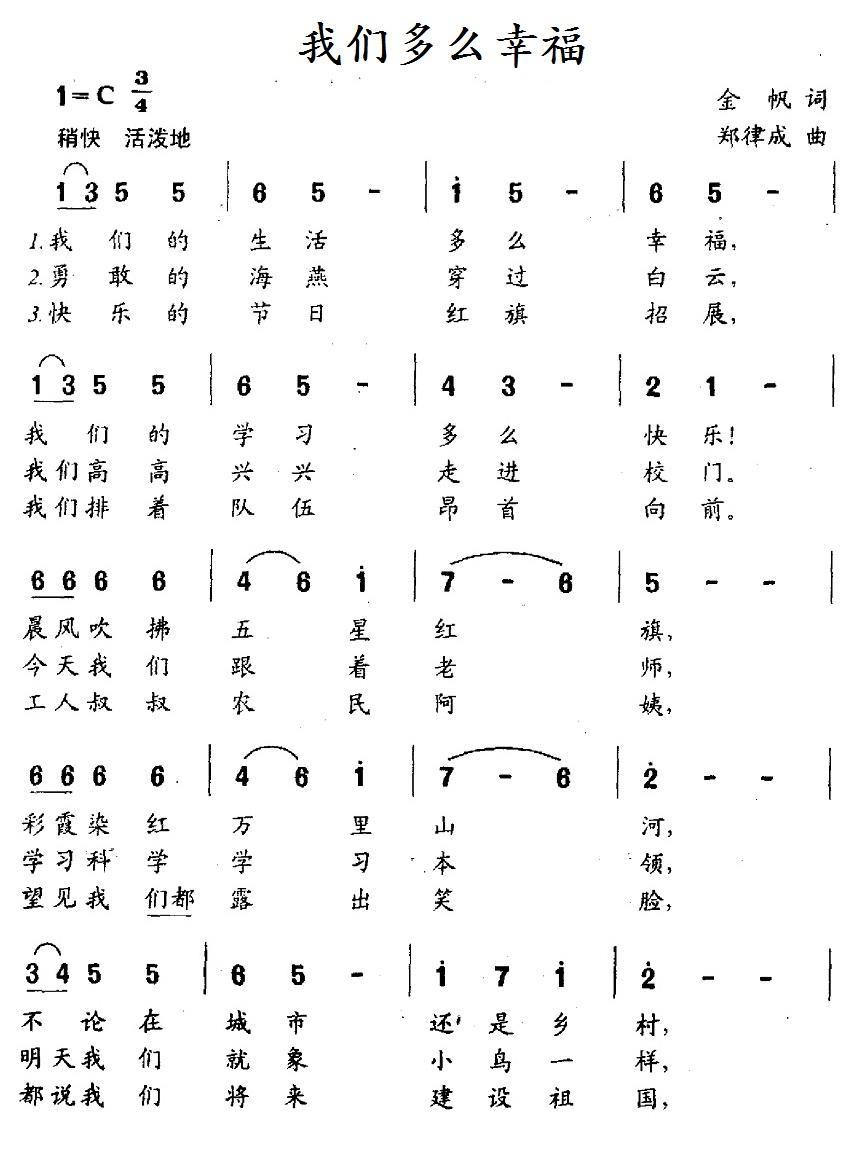 我们多么幸福
1=C 3/4
金 帆 词
稍快 活泼地
郑律成 曲
1 3 5 5 | 6 5 - | i 5 - | 6 5 - |
1.我 们 的 生 活 多 么 幸 福,
2.勇 敢 的 海 燕 穿 过 白 云,
3.快 乐 的 节 日 红 旗 招 展,
1 3 5 5 | 6 5 - | 4 3 - | 2 1 - |
我 们 的 学 习 多 么 快 乐!
我们高 高 兴 兴 走 进 校 门。
我们排 着 队 伍 昂 首 向 前。
6 6 6 6 | 4 6 i | 7 - 6 | 5 - - |
晨风吹 拂 五 星 红 旗,
今天我 们 跟 着 老 师,
工人叔 叔 农 民 阿 姨,
6 6 6 6 | 4 6 i | 7 - 6 | 2̇ - - |
彩霞染 红 万 里 山 河,
学习科 学 学 习 本 领,
望见我 们都 露 出 笑 脸,
3 4 5 5 | 6 5 - | i 7 i | 2̇ - - |
不 论 在 城 市 还 是 乡 村,
明天我 们 就 象 小 鸟 一 样,
都说我 们 将 来 建 设 祖 国,